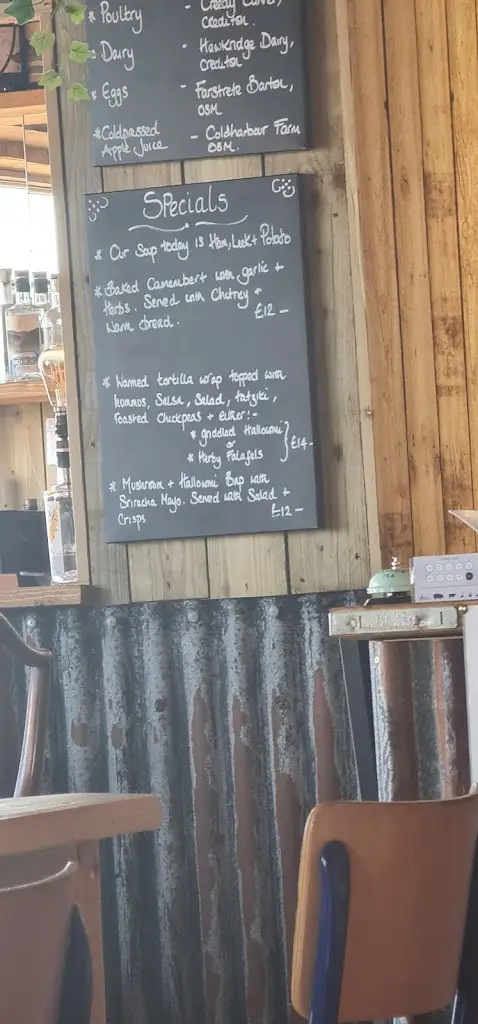 * Poultry - Creedy Carver,
Crediton.
* Dairy - Hawkridge Dairy,
Crediton
* Eggs - Farstrete Barton,
OSM
* Coldpressed
Apple Juice - Coldharbour Farm
OSM.
Specials
* Our Soup today is Ham, Leek + Potato
* Baked Camembert with garlic +
Herbs. Served with Chutney +
warm bread. £12-
* Warmed tortilla wrap topped with
hummus, Salsa, Salad, tatziki,
roasted Chickpeas + either:-
* griddled Halloumi
or £14-
* Herby Falafels
* Mushroom + Halloumi Bap with
Sriracha Mayo. Served with Salad +
Crisps £12-
TEA